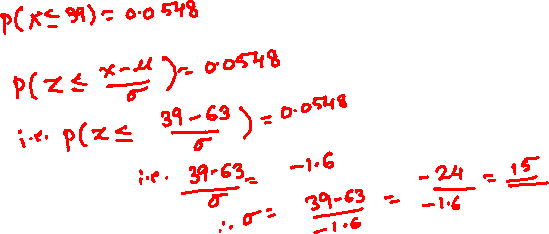 P(x ≤ 39) = 0.0548
P(z ≤ (x-μ)/σ) = 0.0548
i.e. P(z ≤ (39-63)/σ) = 0.0548
i.e. (39-63)/σ = -1.6
∴ σ = (39-63)/-1.6 = -24/-1.6 = 15